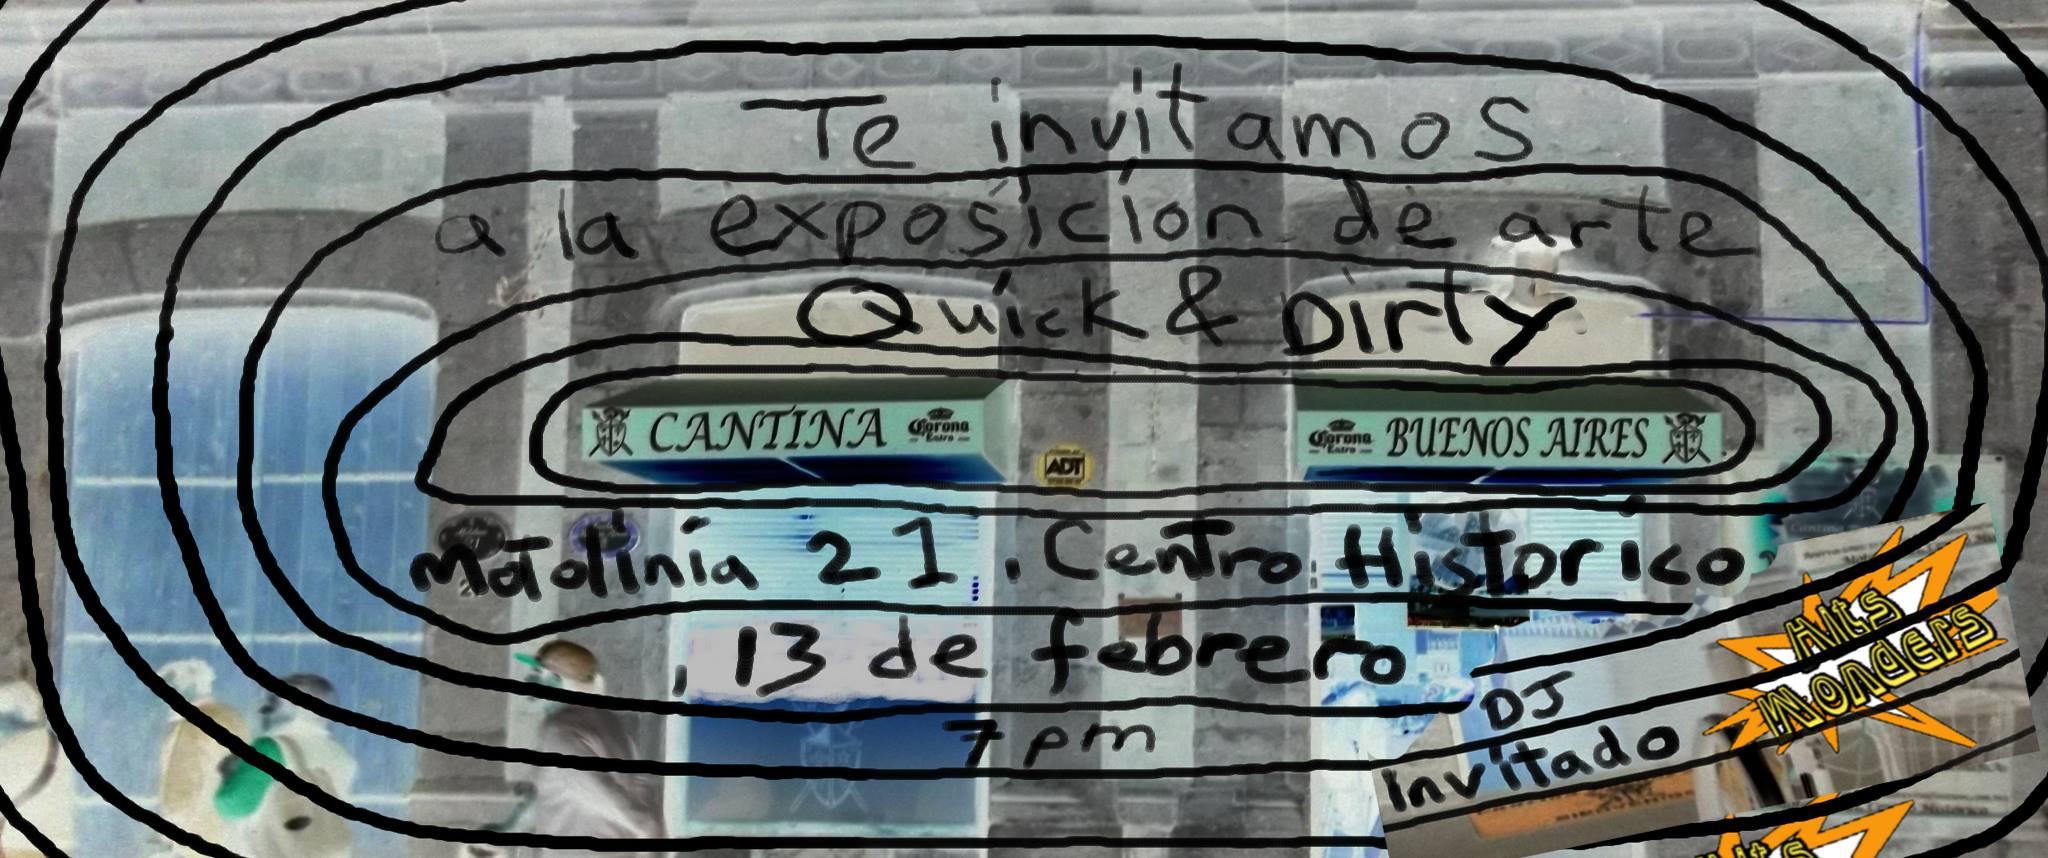 Te invitamos
a la exposicion de arte
Quick & Dirty
CANTINA
Corona
Extra
ADT
Corona
Extra
BUENOS AIRES
Motolinia 21, Centro Historico
, 13 de febrero
7 pm
DJ
invitado
Hits
Wonders
Hits